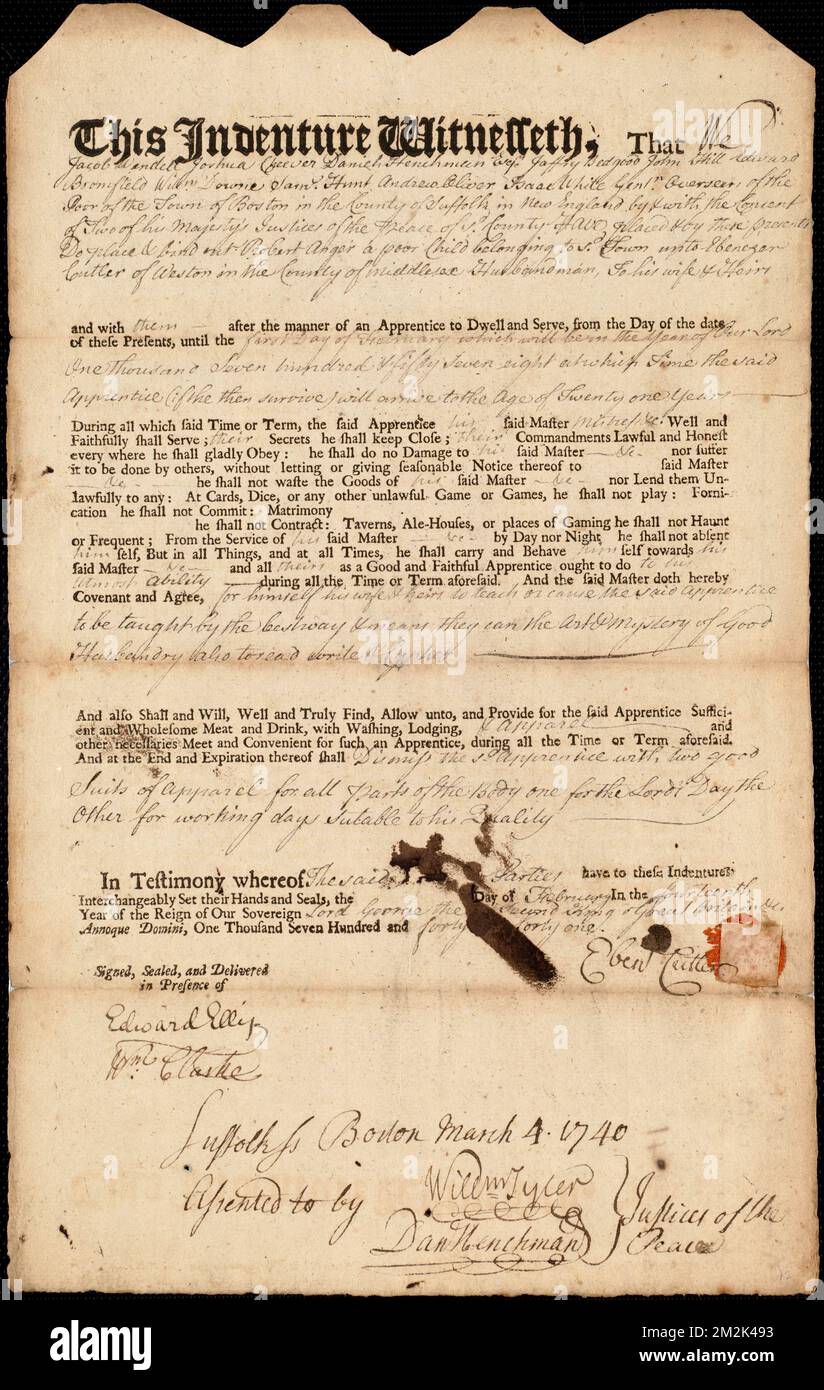 This Indenture Witnesseth, That We
Jacob Wendell Joshua Cheever Daniel Henchman Esqs Jaffry Bedgood John Hill Edward
Bromfield Willm Downe Saml. Hunt Andrew Oliver Isaac White Gentn. Overseers of the
Poor of the Town of Boston in the County of Suffolk in New England by & with the Consent
of Two of his Majestys Justices of the Peace of sd. County Have placed & by these presents
Do place & bind out Robert Anger a poor Child belonging to sd. Town unto Ebenezer
Cutler of Weston in the County of Middlesex Husbandman, To his wife & Heirs
and with them after the manner of an Apprentice to Dwell and Serve, from the Day of the date
of these Presents, until the first Day of February which will be in the Year of Our Lord
One thousand Seven hundred & fifty Seven eight at which Time the said
Apprentice (if he then survive) will arrive to the Age of Twenty one Years
During all which said Time or Term, the said Apprentice his said Master Well and
Faithfully shall Serve; their Secrets he shall keep Close; their Commandments Lawful and Honest
every where he shall gladly Obey: he shall do no Damage to his said Master &c nor suffer
it to be done by others, without letting or giving seasonable Notice thereof to said Master
&c he shall not waste the Goods of his said Master &c nor Lend them Un-
lawfully to any: At Cards, Dice, or any other unlawful Game or Games, he shall not play: Forni-
cation he shall not Commit: Matrimony
he shall not Contract: Taverns, Ale-Houses, or places of Gaming he shall not Haunt
or Frequent; From the Service of his said Master &c by Day nor Night he shall not absent
him self, But in all Things, and at all Times, he shall carry and Behave him self towards his
said Master &c and all theirs as a Good and Faithful Apprentice ought to do to his
utmost Ability during all the Time or Term aforesaid. And the said Master doth hereby
Covenant and Agree, for himself his wife & heirs to teach or cause the said Apprentice
to be taught by the best way & means they can the Art & Mystery of Good
Husbandry also to read write & Cypher
And also Shall and Will, Well and Truly Find, Allow unto, and Provide for the said Apprentice Suffici-
ent and Wholesome Meat and Drink, with Washing, Lodging, & apparel and
other necessaries Meet and Convenient for such an Apprentice, during all the Time or Term aforesaid.
And at the End and Expiration thereof shall Dismiss the sd. Apprentice with two good
Suits of Apparel for all parts of the Body one for the Lords Day the
Other for working days Sutable to his Quality
In Testimony whereof The said Parties have to these Indentures
Interchangeably Set their Hands and Seals, the Day of February In the fourteenth
Year of the Reign of Our Sovereign Lord George the Second King of Great Britain &c
Annoque Domini, One Thousand Seven Hundred and forty forty one.
Ebenr Cutler
Signed, Sealed, and Delivered
in Presence of
Edward Ellis
Wm. Clarke
Suffolk ss Boston March 4. 1740
Assented to by Willm Tyler Justices of the
Dan Henchman Peace
alamy
Image ID: M2K493
www.alamy.com